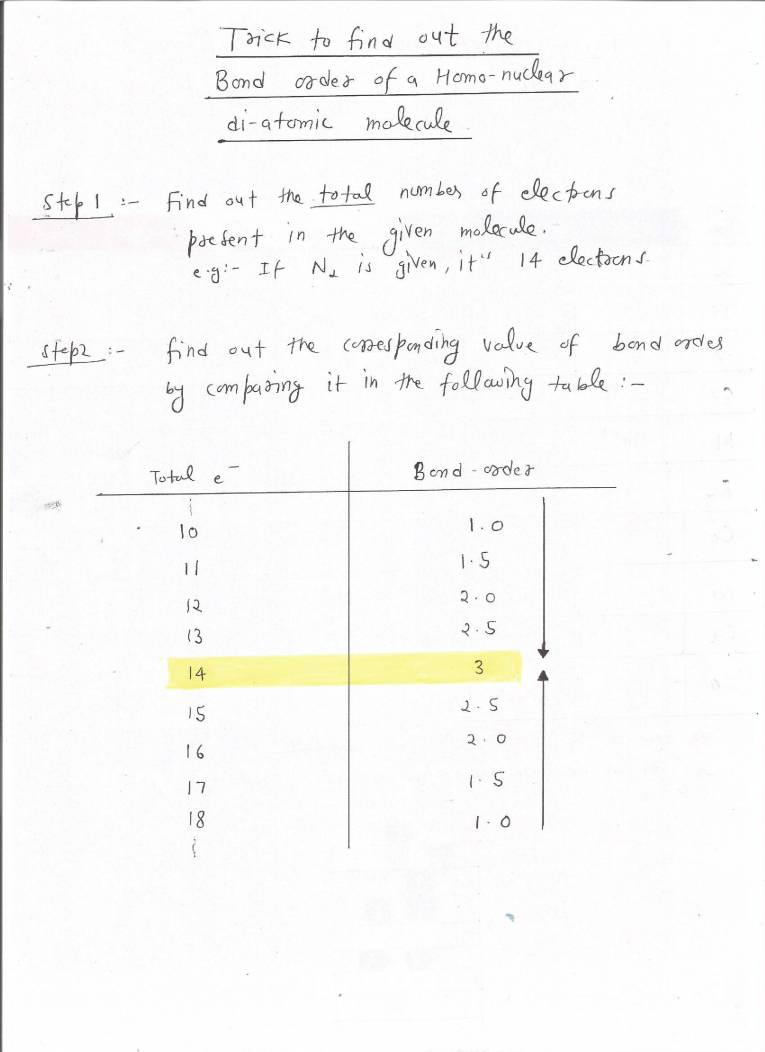 Trick to find out the
Bond order of a Homo-nuclear
di-atomic molecule.
Step 1 :- Find out the total number of electrons
present in the given molecule.
e.g:- If N2 is given, it" 14 electrons.
Step2 :- find out the corresponding value of bond order
by comparing it in the following table :-
Total e⁻ Bond-order
10 1.0
11 1.5
12 2.0
13 2.5
14 3
15 2.5
16 2.0
17 1.5
18 1.0